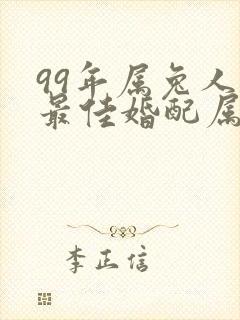 99年属兔人
最佳婚配属
李正信